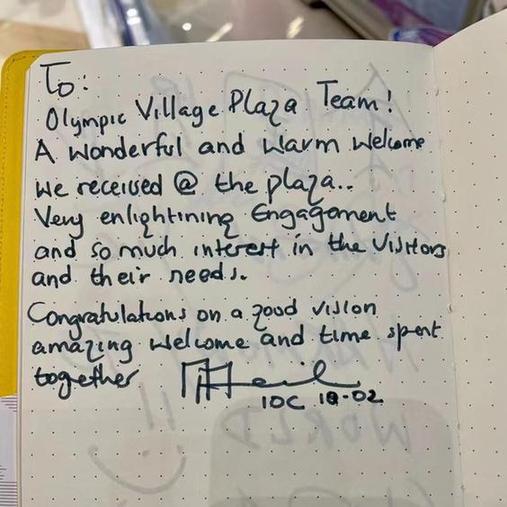 To:
Olympic Village Plaza Team!
A Wonderful and Warm Welcome
we received @ the plaza..
Very enlightining Engagement
and so much interest in the Visitors
and their needs.
Congratulations on a good vision
amazing welcome and time spent
together
IOC 18-02
WORLD